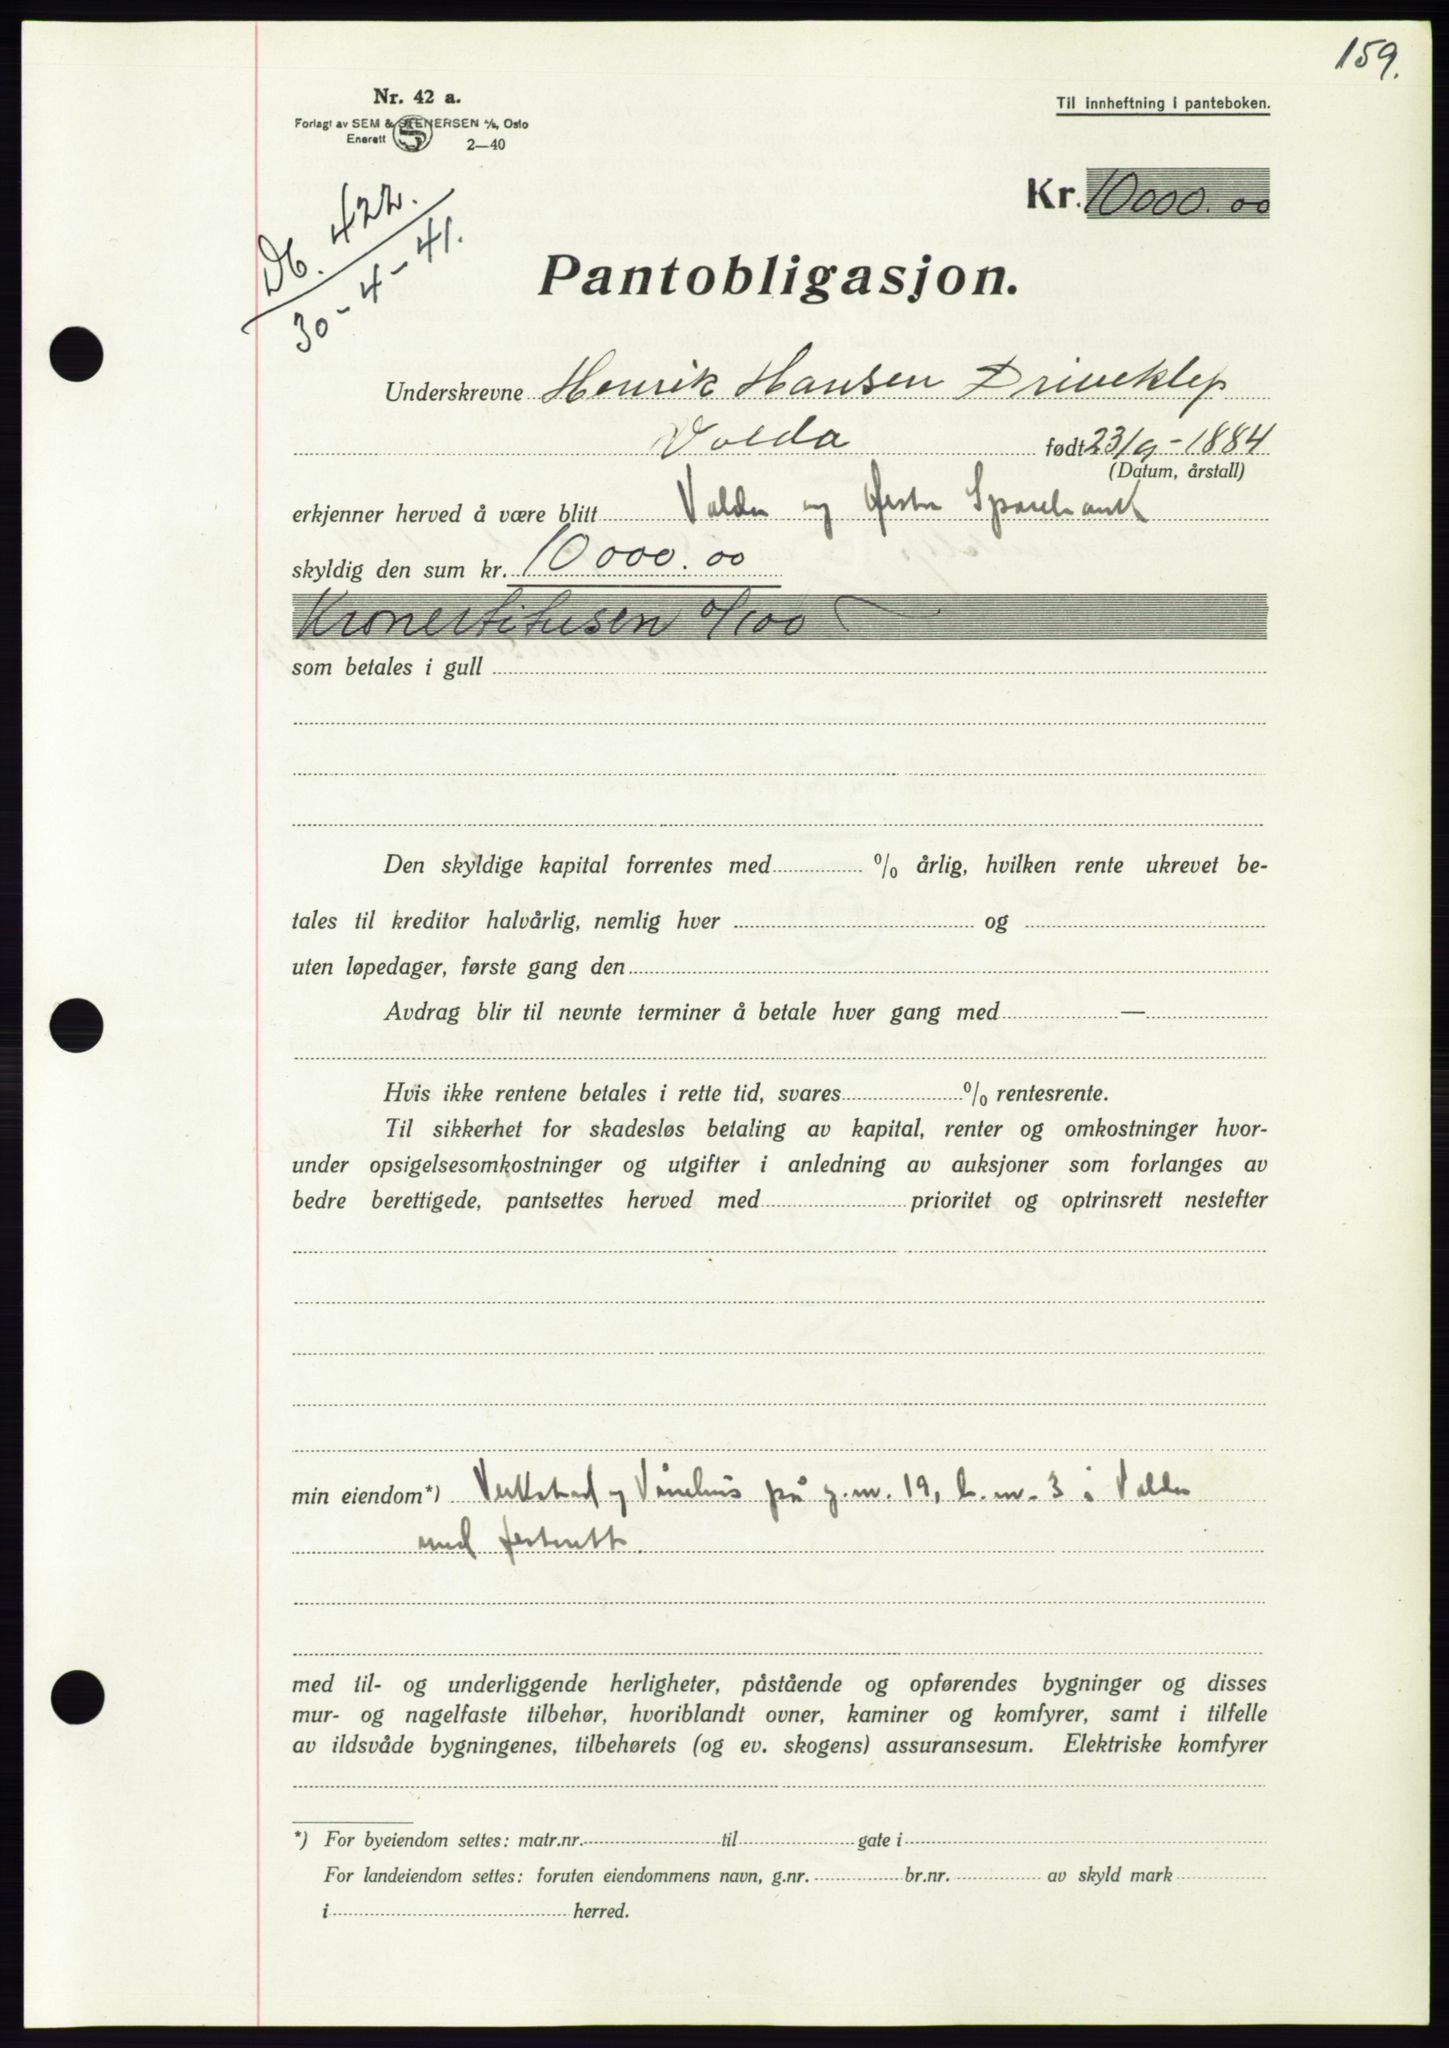 159.
Nr. 42 a.
Forlagt av SEM & STENERSEN A/S, Oslo
Enerett
2—40
Til innheftning i panteboken.
Kr. 10000.00
Db. 422.
30-4-41.
Pantobligasjon.
Underskrevne Henrik Hansen Driveklep
Volda født 23/9-1884
(Datum, årstall)
erkjenner herved å være blitt Volda og Ørsta Sparebank
skyldig den sum kr. 10000.00
Kronertitusen 0/100
som betales i gull
Den skyldige kapital forrentes med % årlig, hvilken rente ukrevet be-
tales til kreditor halvårlig, nemlig hver og
uten løpedager, første gang den
Avdrag blir til nevnte terminer å betale hver gang med —
Hvis ikke rentene betales i rette tid, svares % rentesrente.
Til sikkerhet for skadesløs betaling av kapital, renter og omkostninger hvor-
under opsigelsesomkostninger og utgifter i anledning av auksjoner som forlanges av
bedre berettigede, pantsettes herved med prioritet og optrinsrett nestefter
min eiendom*) Verkstad og Vånehus på g.nr. 19, b.nr. 3 i Volda
med festerett.
med til- og underliggende herligheter, påstående og opførendes bygninger og disses
mur- og nagelfaste tilbehør, hvoriblandt ovner, kaminer og komfyrer, samt i tilfelle
av ildsvåde bygningenes, tilbehørets (og ev. skogens) assuransesum. Elektriske komfyrer
*) For byeiendom settes: matr.nr. til gate i
For landeiendom settes: foruten eiendommens navn, g.nr. br.nr. av skyld mark
i herred.